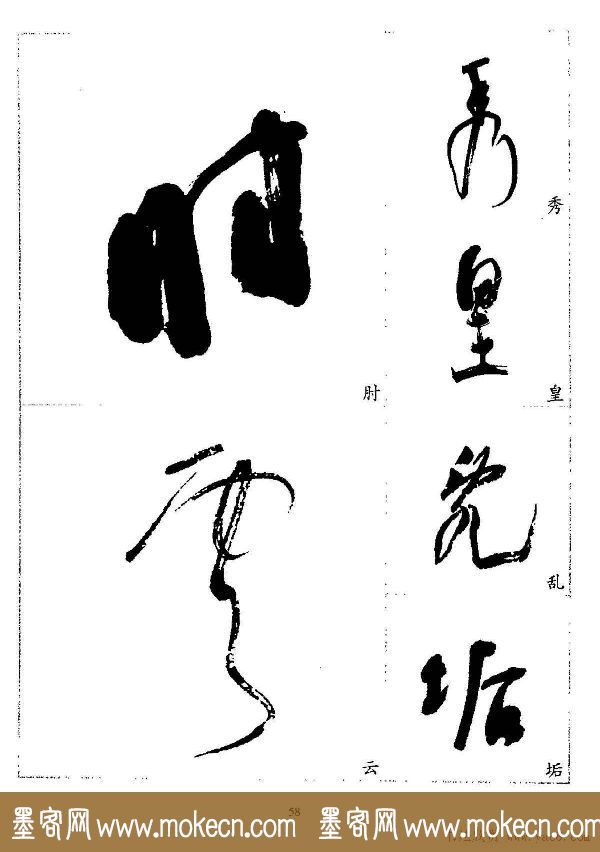 秀
皇
乱
垢
肘
云
58
墨客网 www.mokecn.com 墨客网 www.mokecn.com